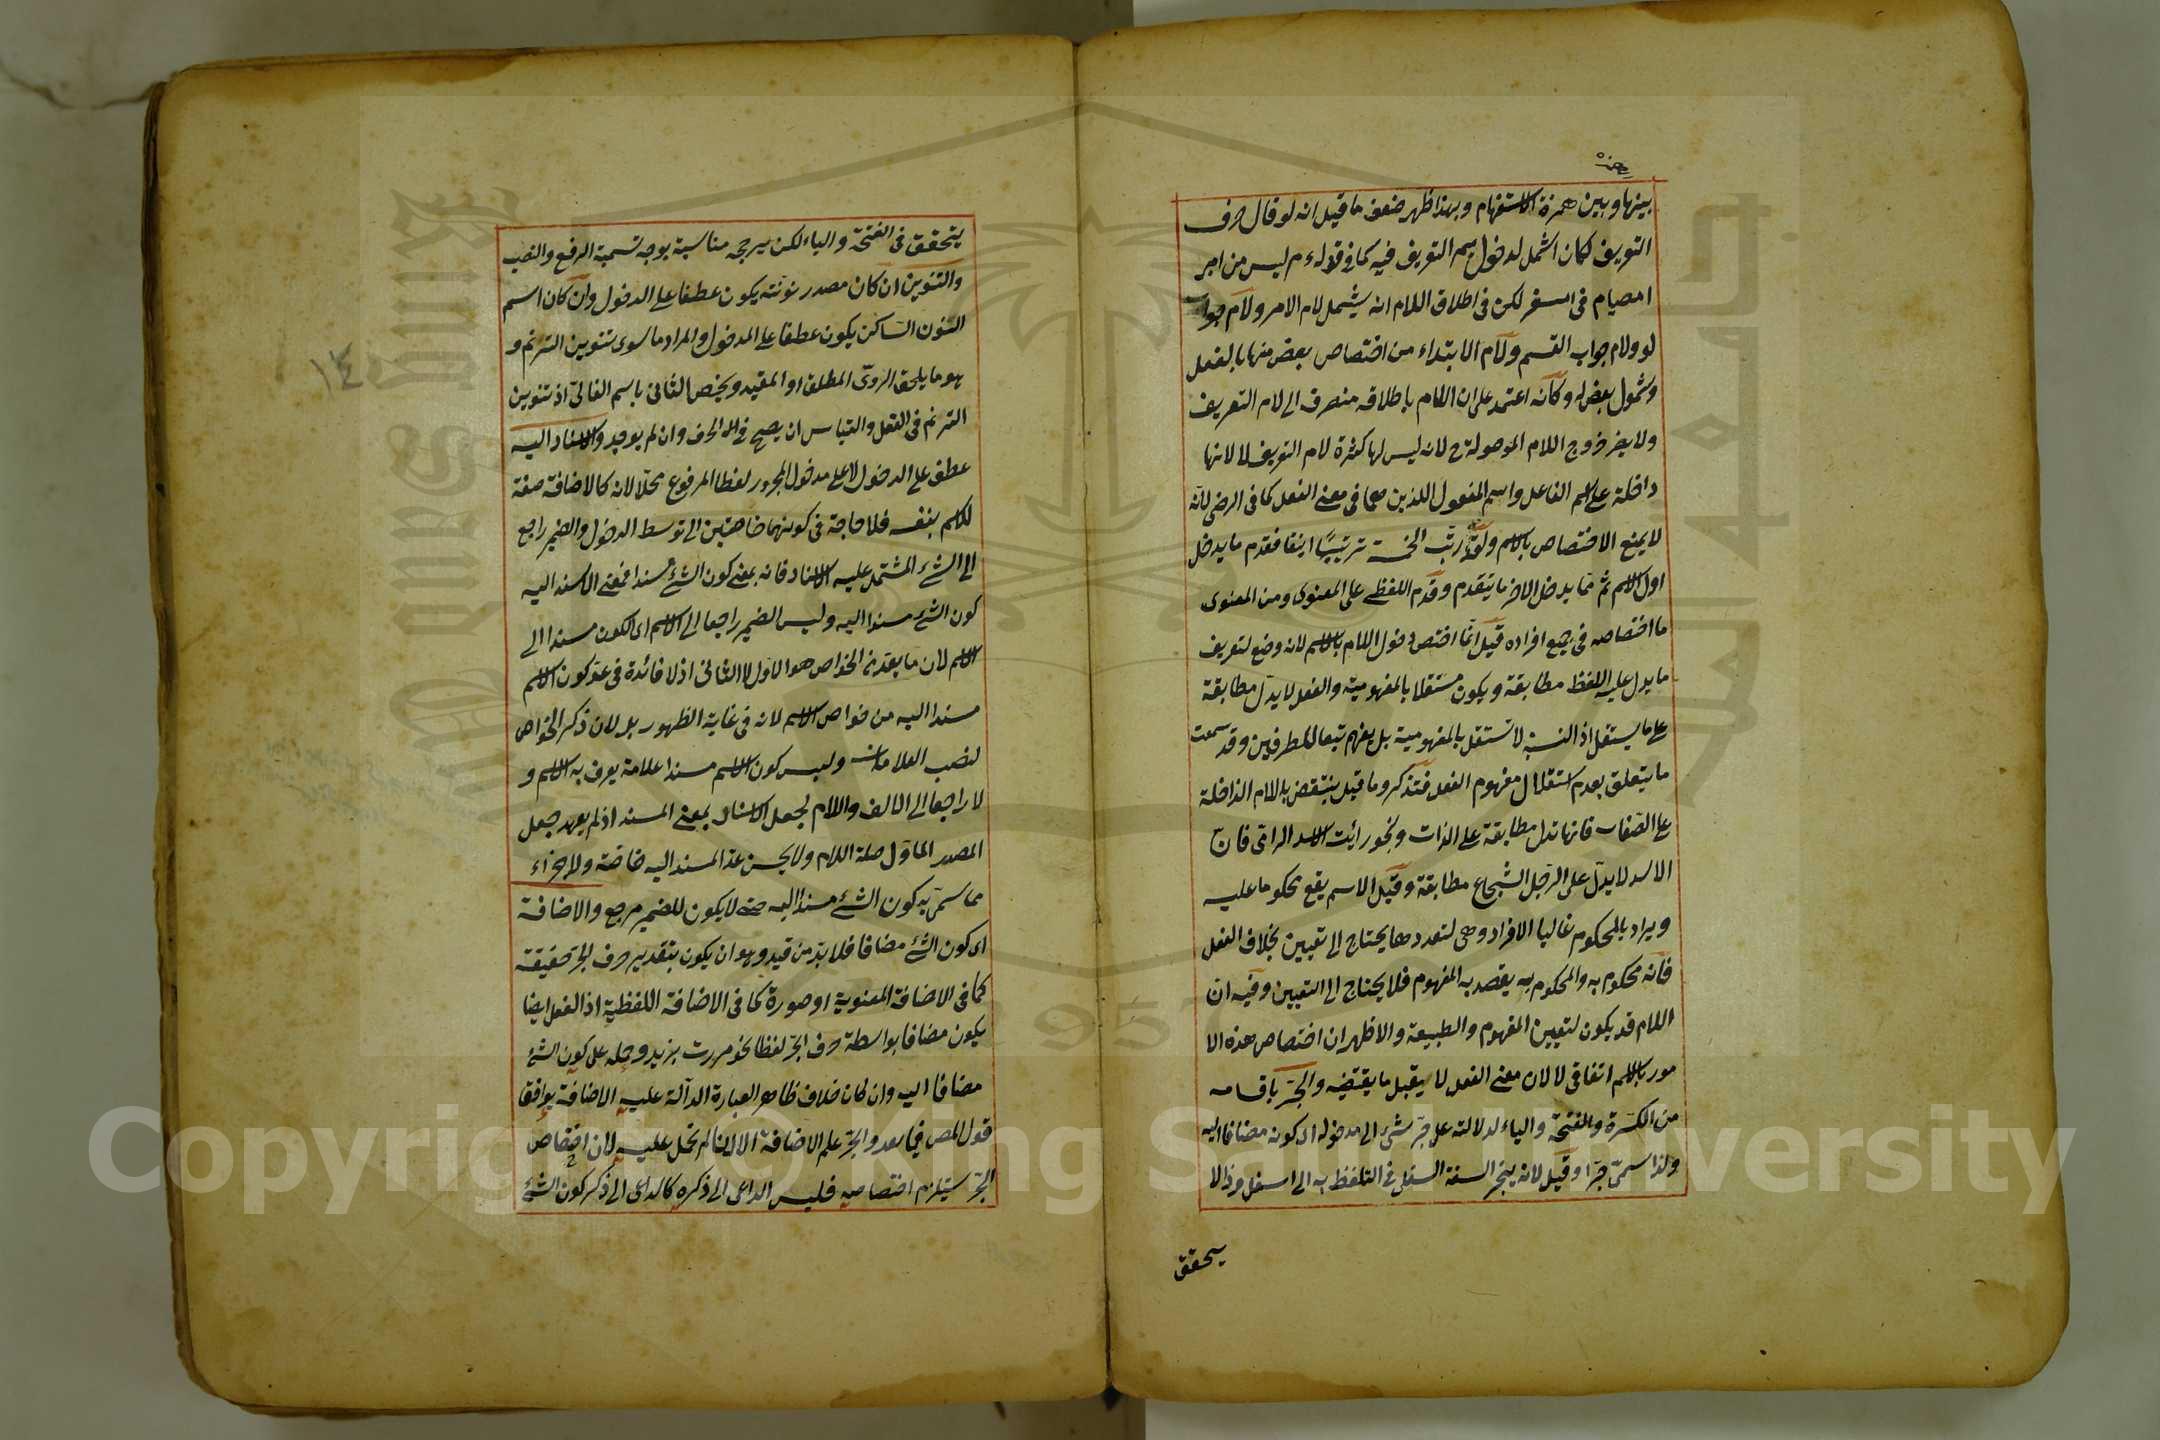 بينها وبين همزة الاستفهام وبهذا ظهر ضعف ما قيل انه لو قال حرف
التعريف لكان اشمل لدخول ميم التعريف فيه كما في قوله ءم ليس من امبر
امصيام في امسفر لكن في اطلاق اللام انه يشمل لام الامر ولام جواب
لو ولام جواب القسم ولام الابتداء من اختصاص بعض منها بالفعل
وشمول بعض له وكأنه اعتمد على ان اللام باطلاقه منصرف الى لام التعريف
ولا يضر خروج اللام الموصولة ح لانه ليس لها كثرة لام التعريف لا لانها
داخلة على اسم الفاعل واسم المفعول اللذين هما في معنى الفعل كما في الرضى لانه
لا يمنع الاختصاص بالاسم ولقد رتب الخمسة ترتيبا انيقا فقدم ما يدخل
اول الاسم ثم مما يدخل الاخر ما يتقدم وقدم اللفظى على المعنوى ومن المعنوى
ما اختصاصه في جميع افراده قيل انما اختص دخول اللام بالاسم لانه وضع لتعريف
ما يدل عليه اللفظ مطابقة ويكون مستقلا بالمفهومية والفعل لا يدل مطابقة
على ما يستقل اذ النسبة لا تستقل بالمفهومية بل يفهم تبعا للطرفين وقد سمعت
ما يتعلق بعدم استقلال مفهوم الفعل فتذكر وما قيل ينتقض باللام الداخلة
على الصفات فانها تدل مطابقة على الذات ونحو رأيت الاسد الرامى فان
الاسد لا يدل على الرجل الشجاع مطابقة وقيل الاسم يقع محكوما عليه
ويراد بالمحكوم غالبا الافراد وهى لتعددها يحتاج الى تعيين بخلاف الفعل
فانه محكوم به والمحكوم به يقصد به المفهوم فلا يحتاج الى التعيين وفيه ان
اللام قد يكون لتعيين المفهوم والطبيعة والاظهر ان اختصاص هذه الا
مور بالاسم اتفاقى لا لان معنى الفعل لا يقبل ما يقتضيه والجر باقسامه
من الكسرة والفتحة والياء لدلالته على جر شئ الى مدخوله اى كونه مضافا اليه
ولذا سمى جرا وقيل لانه ينجر الشفة السفلى في التلفظ به الى اسفل وذا لا
يتحقق
يتحقق في الفتحة والياء لكن يرجحه مناسبة بوجه تسمية الرفع والنصب
والتنوين ان كان مصدر نونته يكون عطفا على الدخول وان كان اسم
النون الساكن يكون عطفا على المدخول والمراد ما سوى تنوين الترنم و
هو ما يلحق الروى المطلق او المقيد ويخص الثانى باسم الغالى اذ تنوين
الترنم في الفعل والقياس ان يصح في الحرف وان لم يوجد والاسناد اليه
عطف على الدخول لا على مدخول المجرور لفظا المرفوع محلا لانه كالاضافة صفة
للاسم بنفسه فلا حاجة في كونهما خاصتين الى توسط الدخول والضمير راجع
الى الشئ المشتمل عليه الاسناد فانه بمعنى كون الشئ مسندا فمعنى الاسناد اليه
كون الشئ مسندا اليه وليس الضمير راجعا الى الاسم اى الكون مسندا الى
الاسم لان ما يعد من الخواص هو الاول لا الثانى اذ لا فائدة في عد كون الاسم
مسندا اليه من خواص الاسم لانه في غاية الظهور بل لان ذكر الخواص
لنصب العلامات وليس كون الاسم مسندا علامة يعرف به الاسم و
لا راجعا الى الالف واللام لجعل الاسناد بمعنى المسند اذ لم يعهد جعل
المصدر المأول صلة اللام ولا يحسن عد المسند اليه خاصة ولا جزاء
مما سمى به كون الشئ مسندا اليه حتى لا يكون للضمير مرجع والاضافة
اى كون الشئ مضافا فلا بد من قيد وهو ان يكون بتقدير حرف الجر حقيقة
كما في الاضافة المعنوية او صورة كما في الاضافة اللفظية اذ الفعل ايضا
يكون مضافا بواسطة حرف الجر لفظا نحو مررت بزيد وحمله على كون الشئ
مضافا اليه وان كان خلاف ظاهر العبارة الدالة عليه الاضافة يوافقا
قول المص فيما بعد والجر علم الاضافة الا انا لم نحمل عليه لان اختصاص
الجر يستلزم اختصاصه فليس الداعى الى ذكره كالداعى الى ذكر كون الشئ
١٤
Copyright © King Saud University
1957